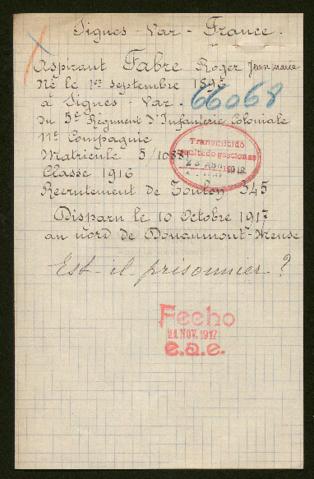 Signes - Var - France.
Aspirant Fabre Roger Jean marie
Né le 1er septembre 189
66068
à Signes - Var.
du 5e Régiment d'Infanterie Coloniale
11e Compagnie
Transmitido
Matricule 5/1038
Classe 1916
Recrutement de Toulon 345
Disparu le 10 Octobre 1917
au nord de Douaumont - Meuse
Est-il prisonnier ?
Fecho
21 NOV. 1917
e.a.e.